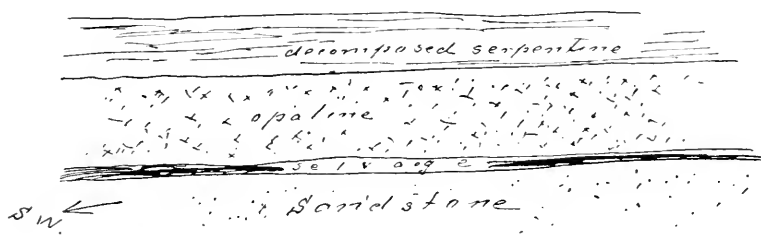 decomposed serpentine
opaline
selvage
Sandstone
S.W.